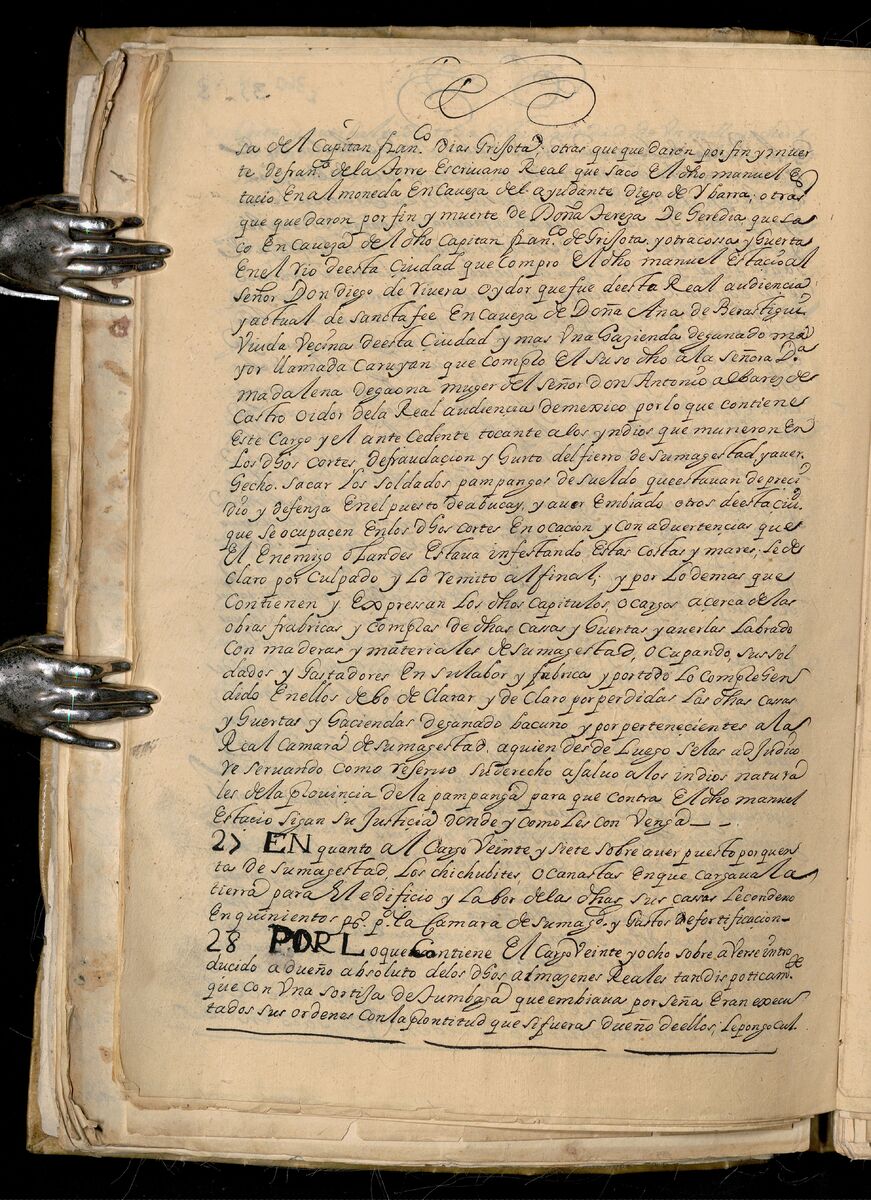 sa del Capitan fran.co Dias Grisota; otras que quedaron por fin y muer
te de fran.co de la torre Escriuano Real que saco El dho manuel Es
tacio En almoneda En Caueza del ayudante diego de Ybarra; otras
que quedaron por fin y muerte de Doña tereza De Geredia que sa
co En Caueza del dho Capitan fran.co de Grisota. y otra cassa y Guerta
En el rio de esta Ciudad que compro El dho manuel Estacio al
señor Don diego de Viuera oydor que fue de esta Real audiencia
y actual de sancta fee En Caueza de Doña Ana de Berastigui
Viuda Vecina de esta Ciudad y mas Vna Gazienda de ganado ma
yor llamada Caruyan que complo El suso dho a la señora D.a
madalena de gaona muger del señor don Antonio albares de
Castro oidor de la Real audiencia de mexico por lo que contiene
Este Cargo y el ante Cedente tocante a los yndios que murieron En
Los dGos Cortes, defraudacion y Gurto del fierro de su magestad y auer
Gecho. sacar los soldados pampangos de sueldo que estauan de preci
dio y defenza En el puesto de abucay, y auer Embiado otros de esta ciu.d
que se ocupacen En los dGos cortes En ocacion y con aduertencias que
El Enemigo olandes Estaua infestando Estas Costas y mares; le de
Claro por Culpado y Lo remito al final; y por Lo demas que
Contienen y Expressan Los dhos Capitulos, o cargos acerca de las
obras frabricas y complas de dhas Cassas y Guertas y auerlas Labrado
Con maderas y materiales de su magestad, o Cupando, sus sol
dados y Gastadores En su labor y fabrica y por todo Lo compleGen
dido En ellos debo de Clarar y de Claro por perdidas Las dhas Cassas
y Guertas y Gaciendas de ganado bacuno y por pertenecientes a la
Real Camara de su magestad, a quien des de Luego se las adJudico
re seruando como reseruo su derecho a saluo a los indios natura
les de la plouincia de la pampanga para que contra El dho manuel
Estacio sigan su Justicia donde y como Les con Venga
27 EN quanto al Cargo Veinte y siete sobre auer puesto por quen
ta de su magestad, Los chichubites, o Canastas En que Cargaua la
tierra para El edificio y Labor de las dhas sus cassas Le condeno
En quinientos ps. p.a la Camara de su mag.d y Gastos de fortificacion
28 POR Lo que Contiene El Cargo Veinte y ocho sobre a Verse intro
ducido a dueño absoluto de los dGos almazenes Reales tan dispoticam.te
que con Vna sortija de tumbaga que embiaua por seña Eran execu
tados sus ordenes Con la plontitud que si fueras dueño de ellos, Le pongo Cul